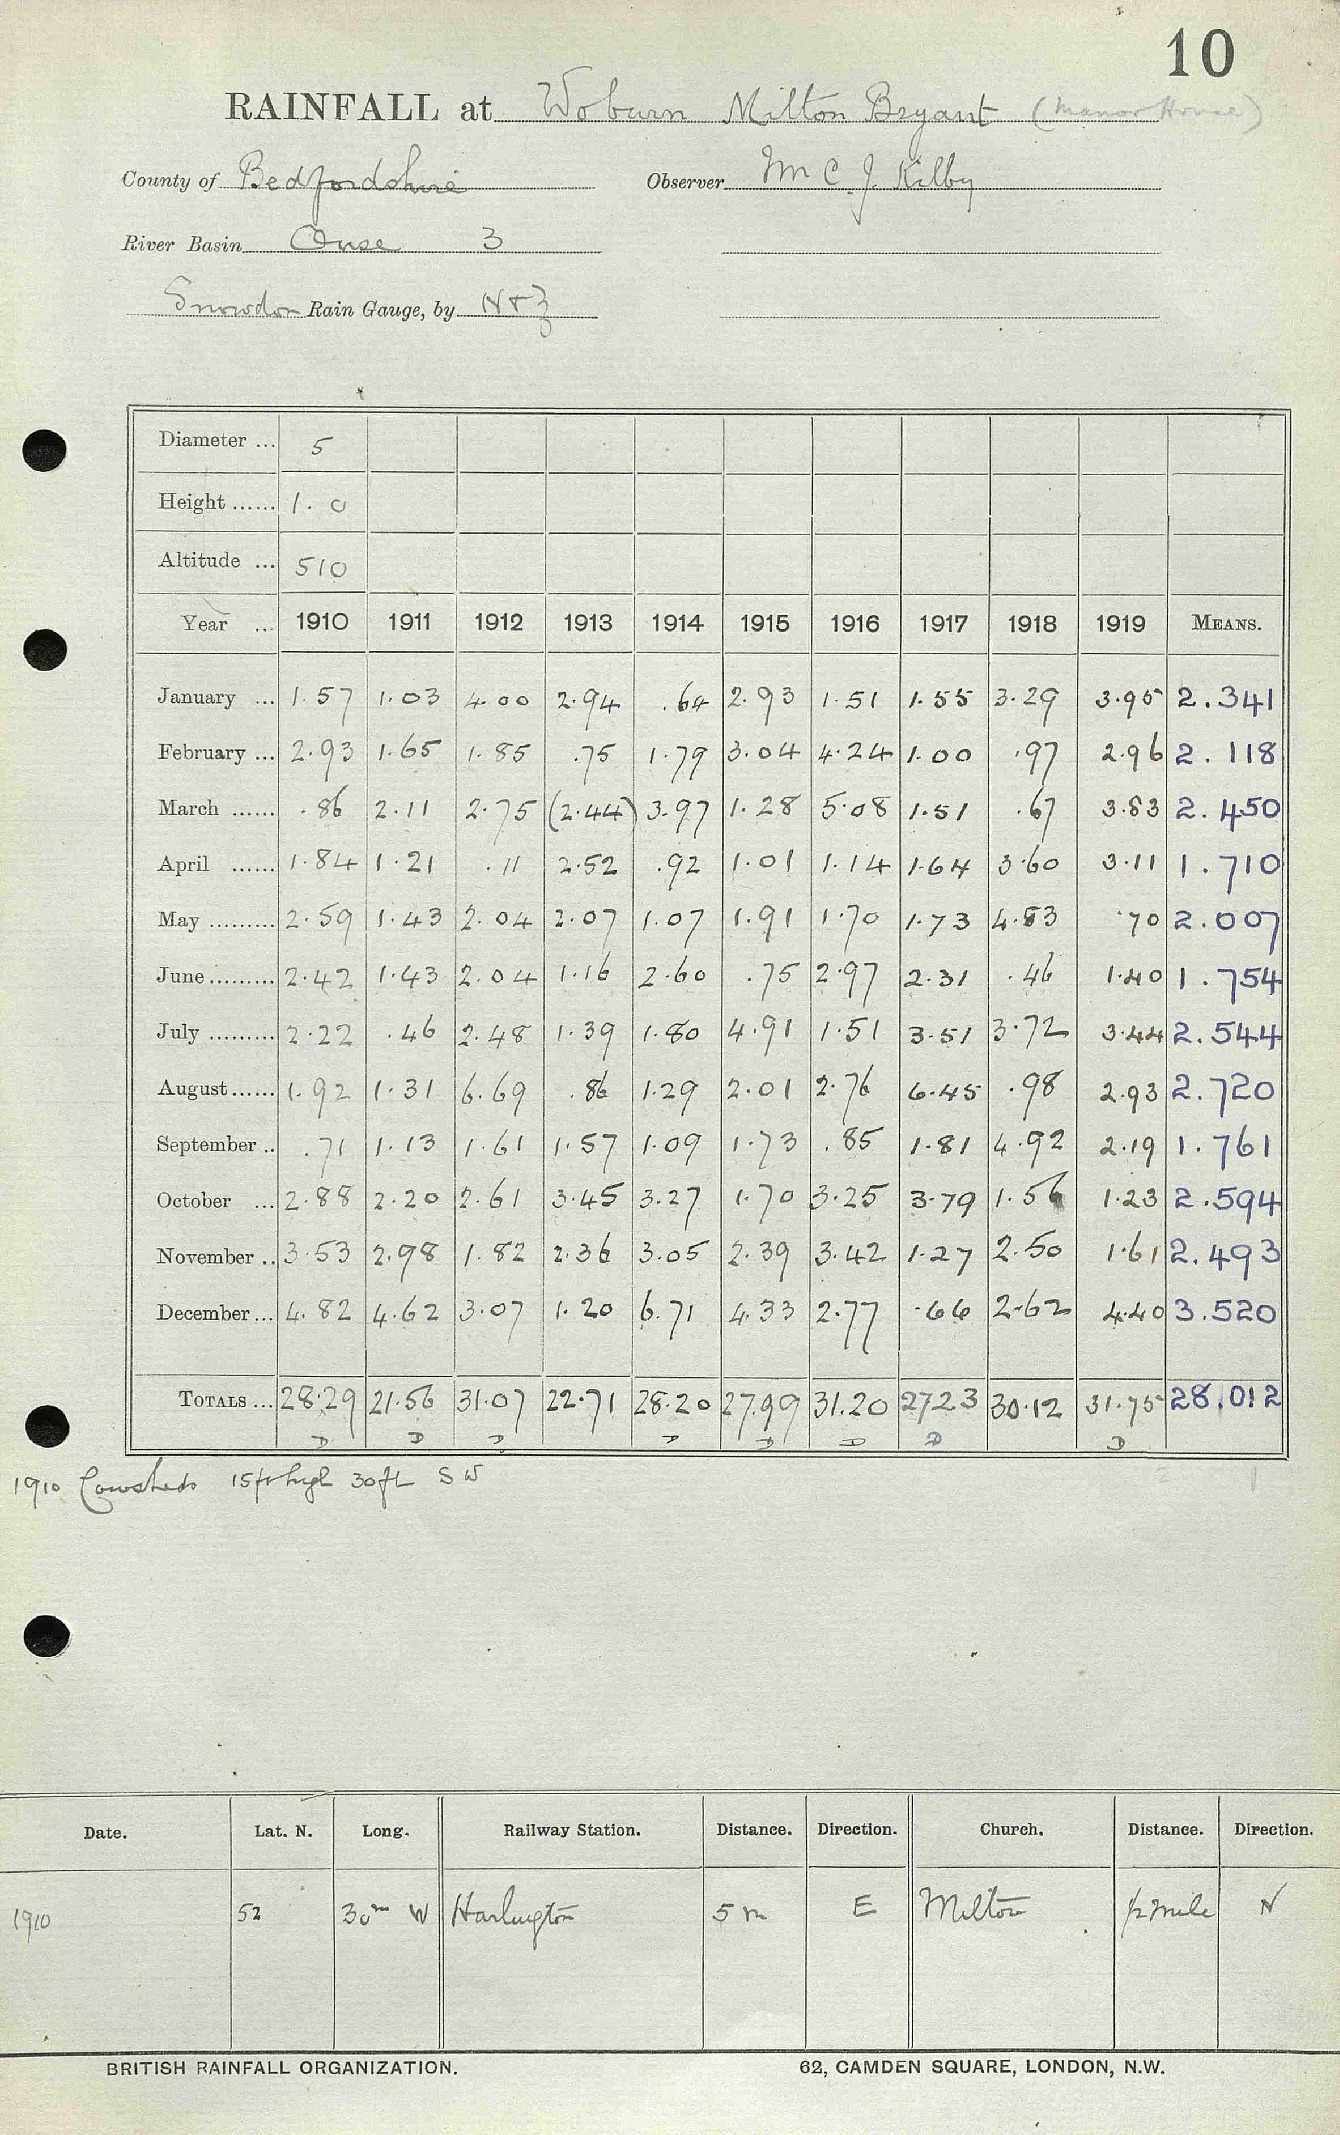 10
RAINFALL at Woburn Milton Bryant (Manor House)
County of Bedfordshire Observer Wm C. J. Kilby
River Basin Ouse 3
Snowdon Rain Gauge, by N & Z
Diameter ... 5
Height ...... 1.0
Altitude ... 510
Year ... 1910 1911 1912 1913 1914 1915 1916 1917 1918 1919 MEANS.
January ... 1.57 1.03 4.00 2.94 .64 2.93 1.51 1.55 3.29 3.95 2.341
February ... 2.93 1.65 1.85 .75 1.79 3.04 4.24 1.00 .97 2.96 2.118
March ...... .86 2.11 2.75 (2.44) 3.97 1.28 5.08 1.51 .67 3.83 2.450
April ...... 1.84 1.21 .11 2.52 .92 1.01 1.14 1.64 3.60 3.11 1.710
May ......... 2.59 1.43 2.04 2.07 1.07 1.91 1.70 1.73 4.83 .70 2.007
June ......... 2.42 1.43 2.04 1.16 2.60 .75 2.97 2.31 .46 1.40 1.754
July ......... 2.22 .46 2.48 1.39 1.80 4.91 1.51 3.51 3.72 3.44 2.544
August ...... 1.92 1.31 6.69 .86 1.29 2.01 2.76 6.45 .98 2.93 2.720
September .. .71 1.13 1.61 1.57 1.09 1.73 .85 1.81 4.92 2.19 1.761
October ... 2.88 2.20 2.61 3.45 3.27 1.70 3.25 3.79 1.56 1.23 2.594
November .. 3.53 2.98 1.82 2.36 3.05 2.39 3.42 1.27 2.50 1.61 2.493
December ... 4.82 4.62 3.07 1.20 6.71 4.33 2.77 .66 2.62 4.40 3.520
TOTALS ... 28.29 21.56 31.07 22.71 28.20 27.99 31.20 27.23 30.12 31.75 28.012
D D D D D D D D
1910 Cowsheds 15ft high 30ft SW
Date. Lat. N. Long. Railway Station. Distance. Direction. Church. Distance. Direction.
1910 52 30m W Harlington 5 m E Milton ½ mile N
BRITISH RAINFALL ORGANIZATION. 62, CAMDEN SQUARE, LONDON, N.W.